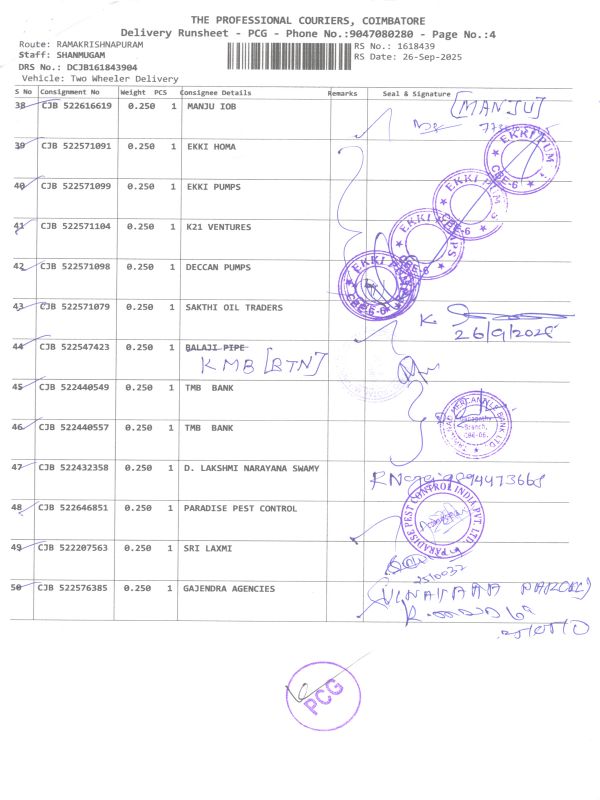 THE PROFESSIONAL COURIERS, COIMBATORE
Delivery Runsheet - PCG - Phone No.:9047080280 - Page No.:4
Route: RAMAKRISHNAPURAM
RS No.: 1618439
Staff: SHANMUGAM
RS Date: 26-Sep-2025
DRS No.: DCJB161843904
Vehicle: Two Wheeler Delivery
S No Consignment No Weight PCS Consignee Details Remarks Seal & Signature
38 CJB 522616619 0.250 1 MANJU IOB [MANJU]
39 CJB 522571091 0.250 1 EKKI HOMA
40 CJB 522571099 0.250 1 EKKI PUMPS
41 CJB 522571104 0.250 1 K21 VENTURES
42 CJB 522571098 0.250 1 DECCAN PUMPS
EKKI PUMPS CBE-6
43 CJB 522571079 0.250 1 SAKTHI OIL TRADERS K.
26/9/2025
44 CJB 522547423 0.250 1 BALAJI PIPE
KMB [BTN]
45 CJB 522440549 0.250 1 TMB BANK
46 CJB 522440557 0.250 1 TMB BANK
Branch,
CBE-06.
47 CJB 522432358 0.250 1 D. LAKSHMI NARAYANA SWAMY
48 CJB 522646851 0.250 1 PARADISE PEST CONTROL
PARADISE PEST CONTROL INDIA PVT. LTD.
49 CJB 522207563 0.250 1 SRI LAXMI
50 CJB 522576385 0.250 1 GAJENDRA AGENCIES
PCG